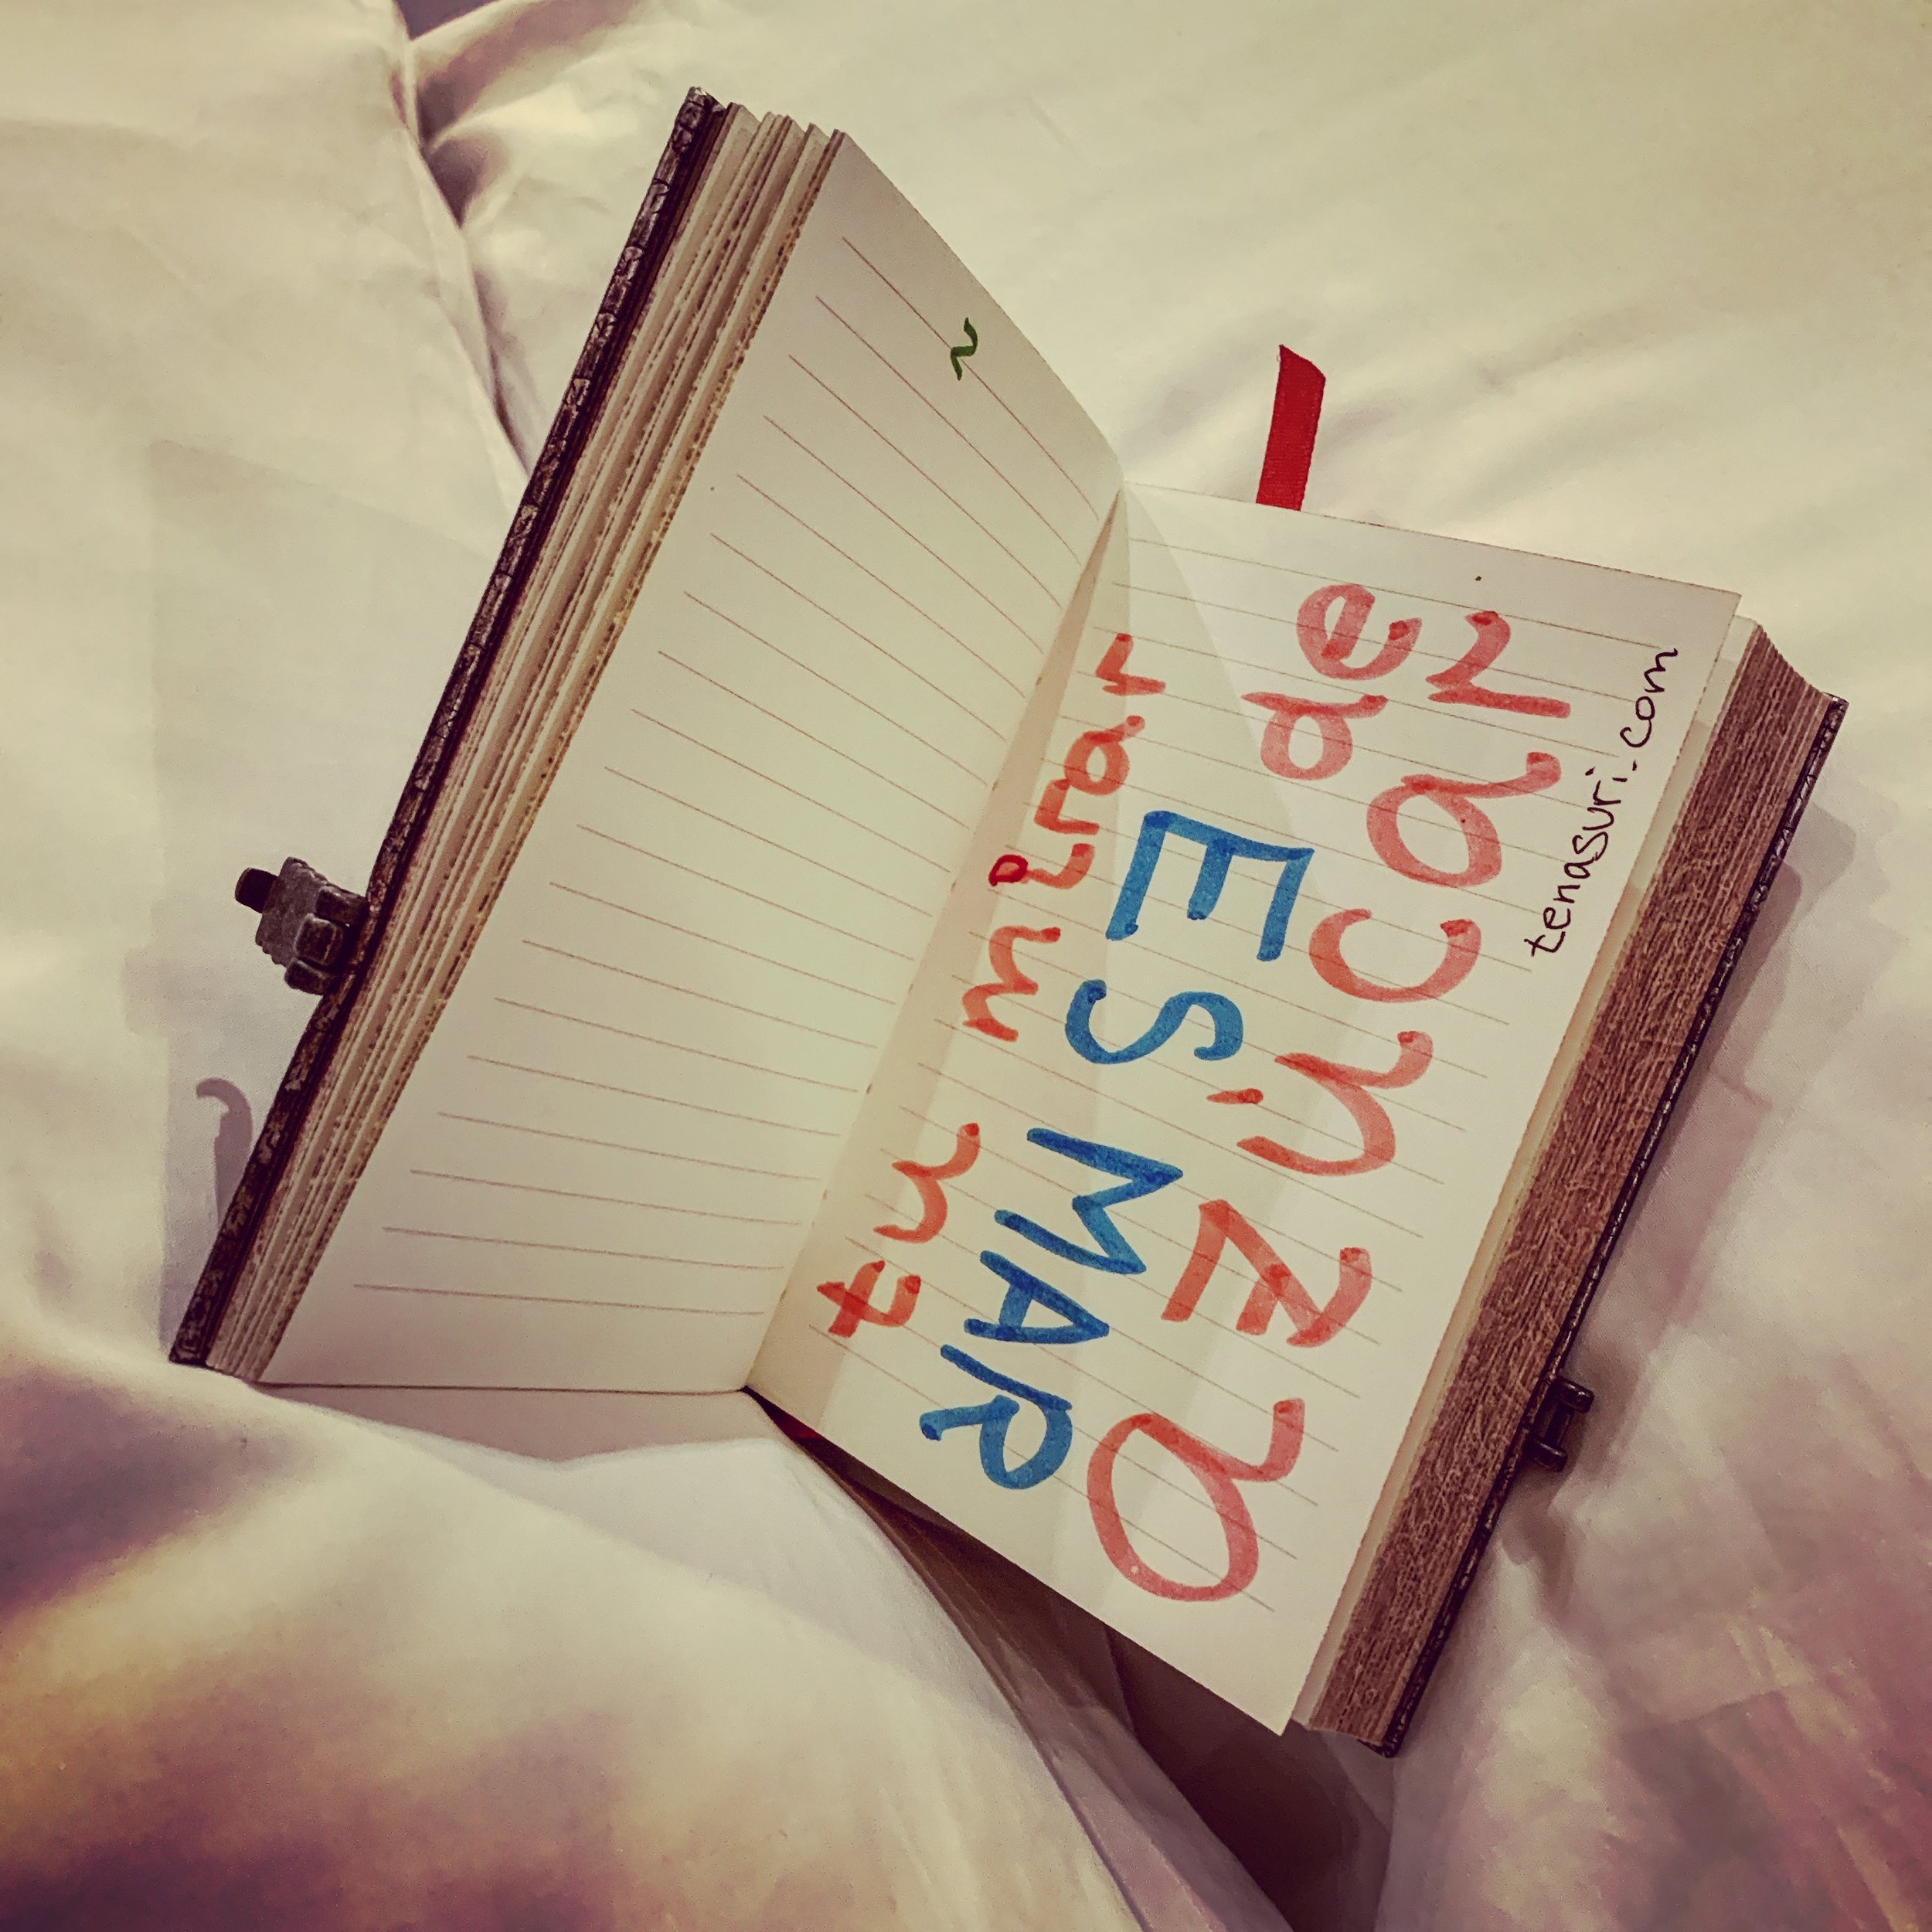 ~
tu mirar
ES MAR
de
azúcar
tenasuri.com